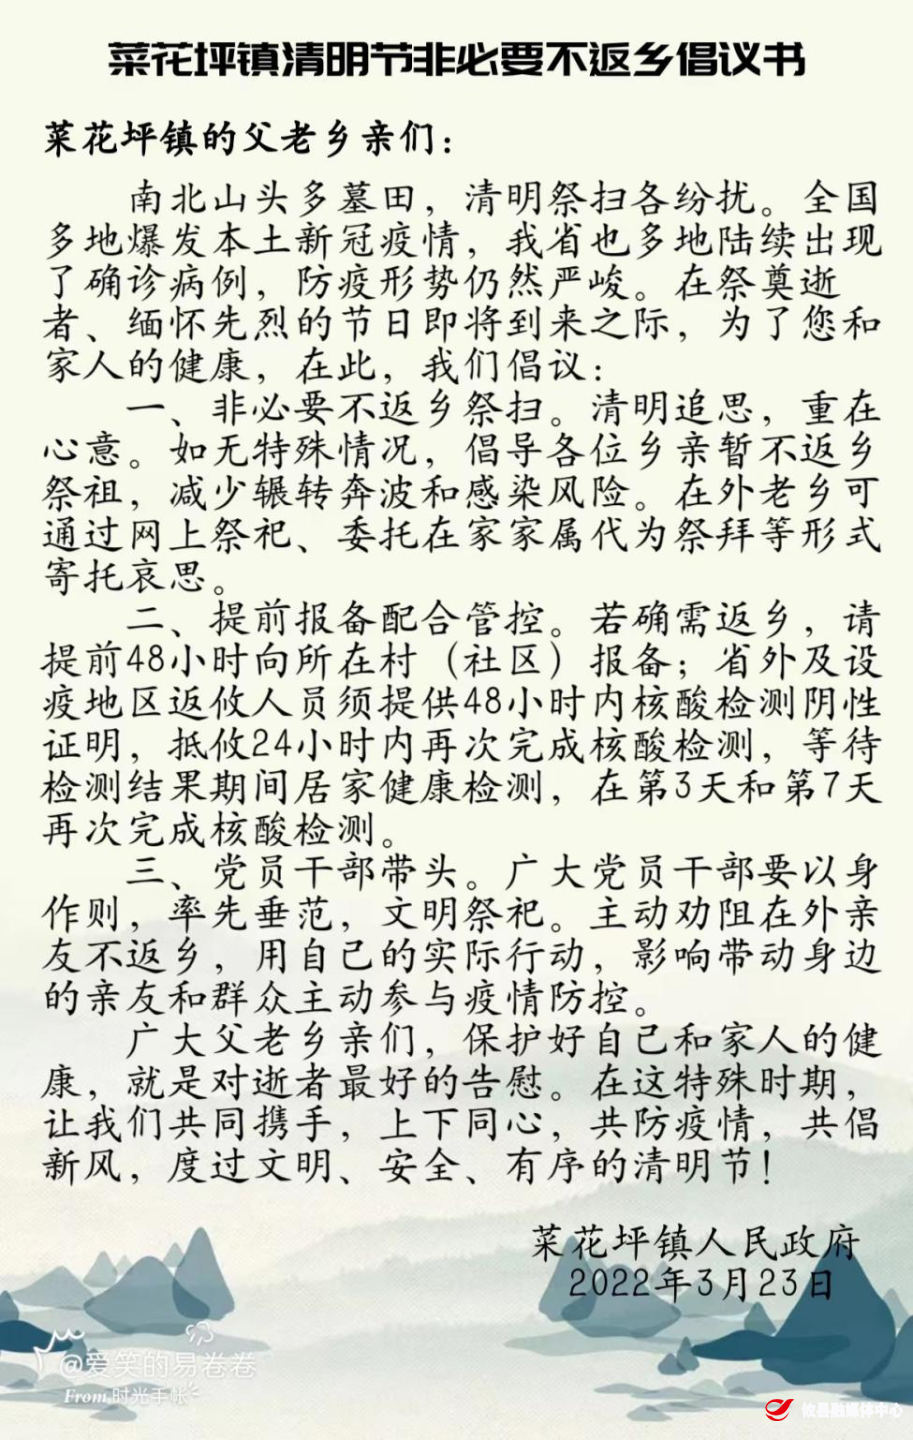 菜花坪镇清明节非必要不返乡倡议书
菜花坪镇的父老乡亲们：
南北山头多墓田，清明祭扫各纷扰。全国
多地爆发本土新冠疫情，我省也多地陆续出现
了确诊病例，防疫形势仍然严峻。在祭奠逝
者、缅怀先烈的节日即将到来之际，为了您和
家人的健康，在此，我们倡议：
一、非必要不返乡祭扫。清明追思，重在
心意。如无特殊情况，倡导各位乡亲暂不返乡
祭祖，减少辗转奔波和感染风险。在外老乡可
通过网上祭祀、委托在家家属代为祭拜等形式
寄托哀思。
二、提前报备配合管控。若确需返乡，请
提前48小时向所在村（社区）报备；省外及设
疫地区返攸人员须提供48小时内核酸检测阴性
证明，抵攸24小时内再次完成核酸检测，等待
检测结果期间居家健康检测，在第3天和第7天
再次完成核酸检测。
三、党员干部带头。广大党员干部要以身
作则，率先垂范，文明祭祀。主动劝阻在外亲
友不返乡，用自己的实际行动，影响带动身边
的亲友和群众主动参与疫情防控。
广大父老乡亲们，保护好自己和家人的健
康，就是对逝者最好的告慰。在这特殊时期，
让我们共同携手，上下同心，共防疫情，共倡
新风，度过文明、安全、有序的清明节！
菜花坪镇人民政府
2022年3月23日
@爱笑的易卷卷
From 时光手帐
攸县融媒体中心